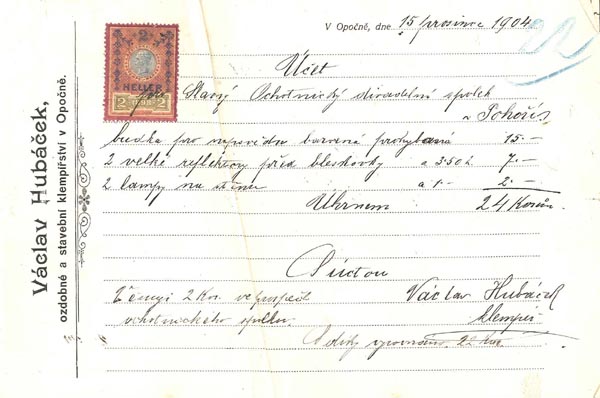 Václav Hubáček,
ozdobné a stavební klempířství v Opočně.
V Opočně, dne 15 prosince 1904
2
HELLER
2 2
Účet
pro Slavný Ochotnický divadelní spolek
v Pohoří
budka pro nápovědu barvená 15·–
2 velké reflektory před bleskovky a 3·50 h 7·–
2 lampy na stěnu a 1·– 2·–
Úhrnem 24 Korun
S úctou
2 Kor. ve prospěch Václav Hubáček
ochotnického spolku. klempíř
S díky 22 Kor.